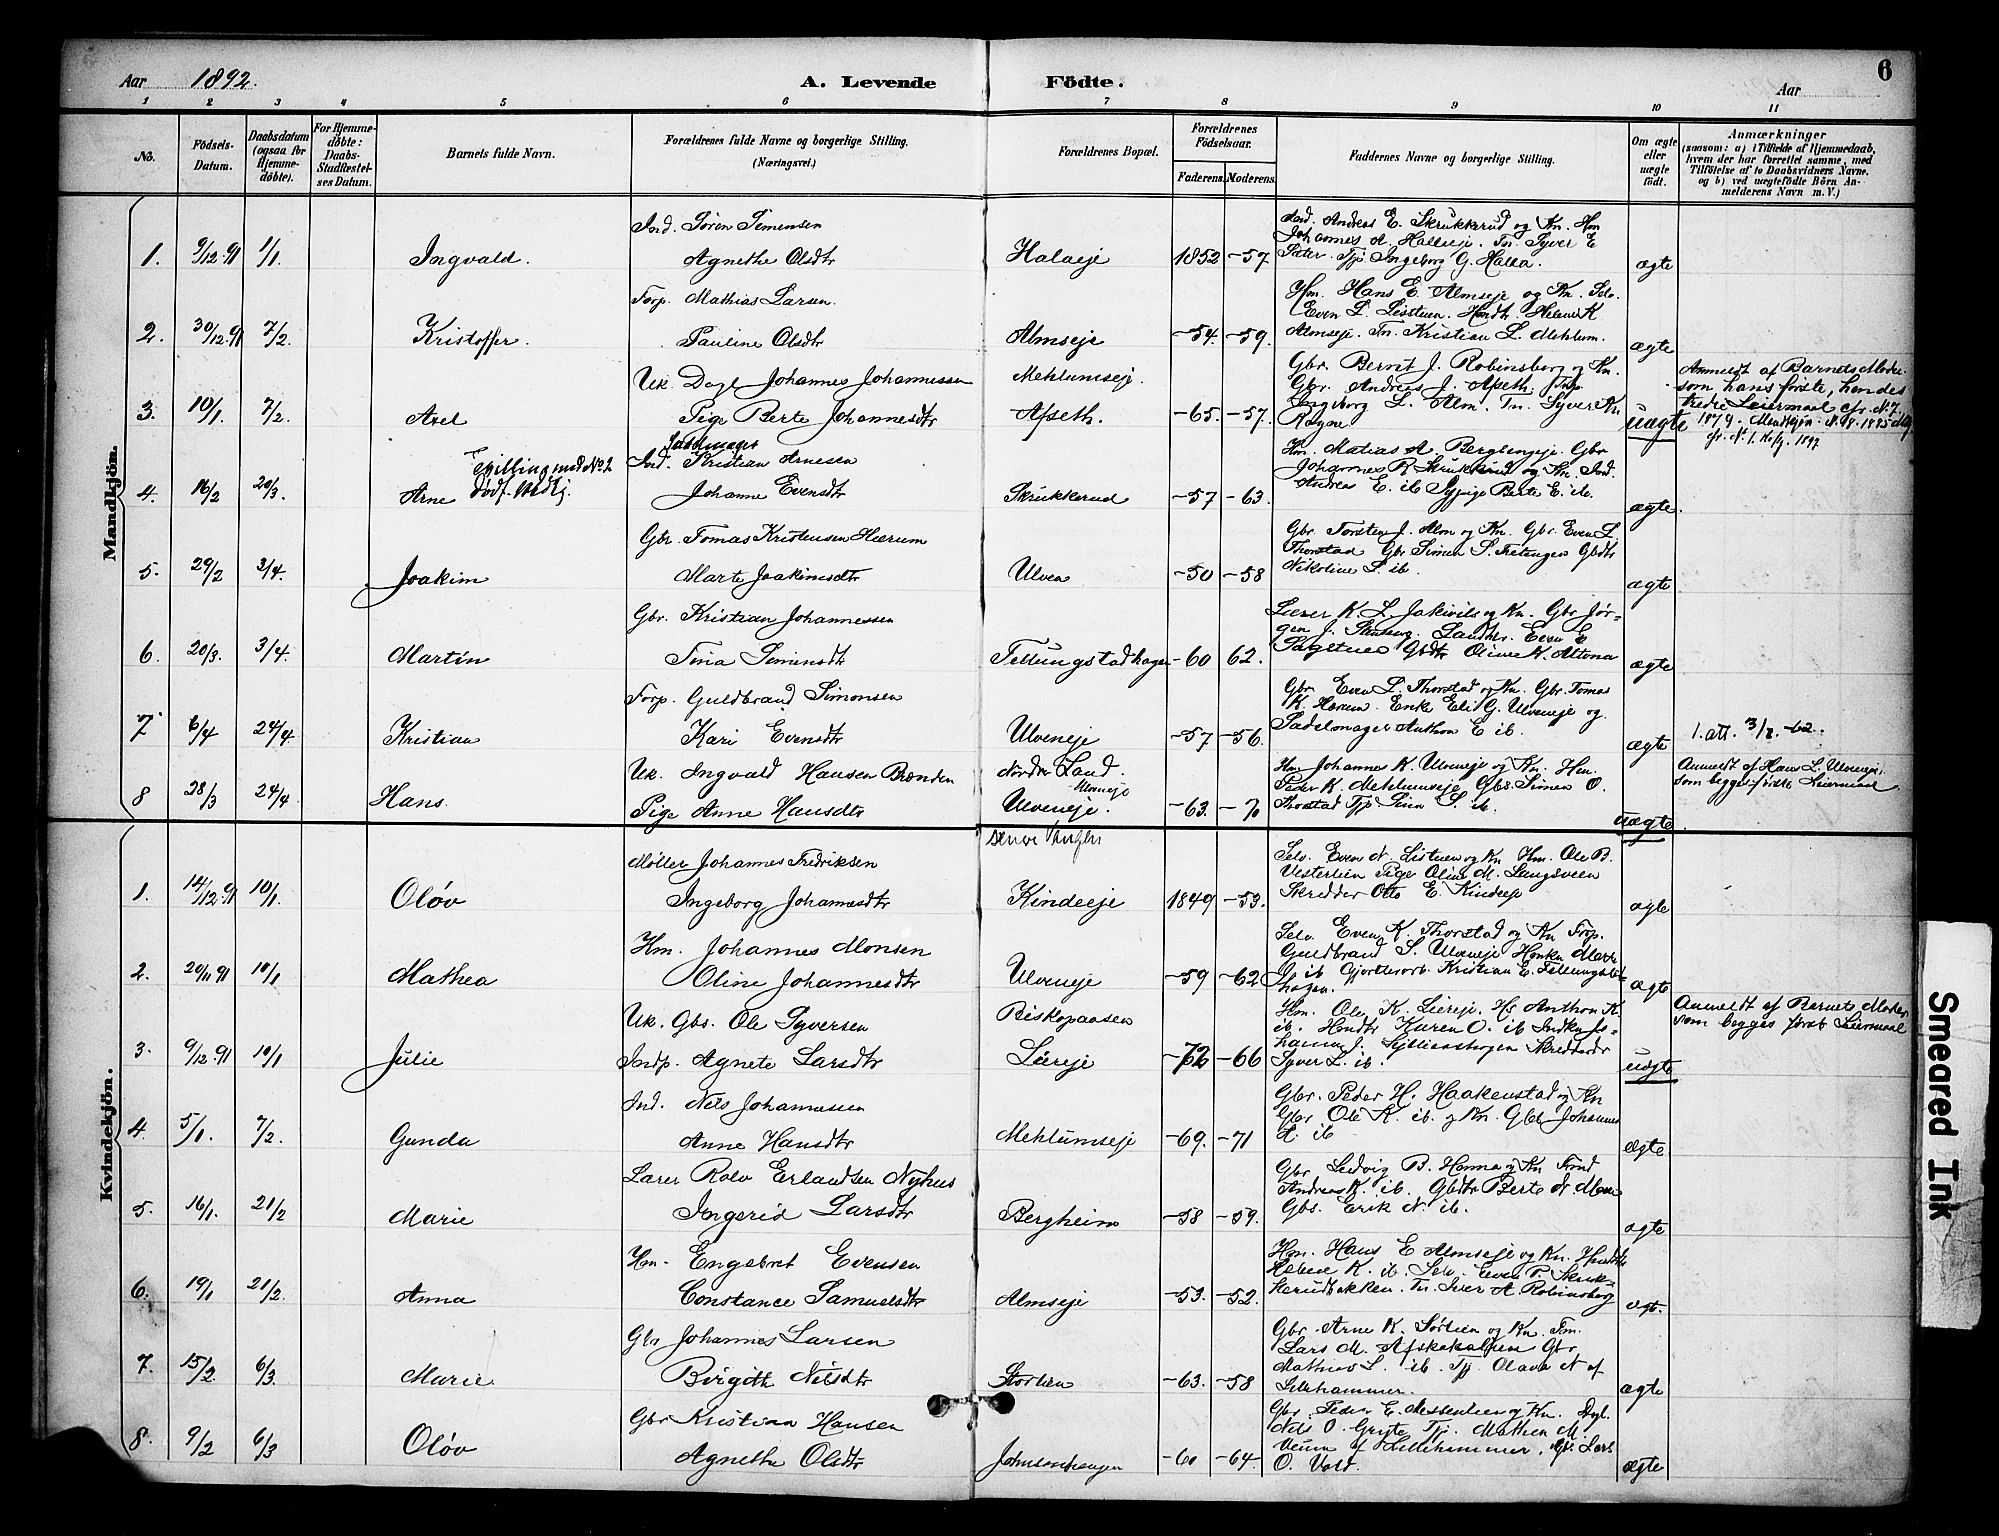 Aar 1892.
A. Levende Födte.
6
Aar
1 2 3 4 5 6 7 8 9 10 11
No.
Födsels-Datum.
Daabsdatum (ogsaa for Hjemme-döbte).
For Hjemme-döbte: Daabs-Stadfæstel-ses Datum.
Barnets fulde Navn.
Forældrenes fulde Navne og borgerlige Stilling. (Næringsvei.)
Forældrenes Bopæl.
Forældrenes Födselsaar.
Faderens. Moderens.
Faddernes Navne og borgerlige Stilling.
Om ægte eller uægte födt.
Anmærkninger
(saasom: a) i Tilfælde af Hjemmedaab, hvem der har forrettet samme, med Tilföielse af to Daabsvidners Navne, og b) ved uægtefödte Börn An-melderens Navn m. V.)
Mandkjön.
Ind. Sören Simensen
1. 9/12.91 1/1 Ingvald. Agnethe Olsdtr Halaeje 1852 -57. ægte
Ind. Andreas E. Skrukkerud og Kn. Hm
Johannes A. Hallaeje. Tn. Syver E
Sæter. Tjp Ingeborg G. Halla.
Forp. Mathias Larsen.
2. 30/12.91 7/2. Kristoffer. Pauline Olsdtr Almseje -54. -59. ægte
Hm. Hans E. Almseje og Kn. Selv.
Even L. Listuen. Hmdtr. Helene K
Almseje. Tn. Kristian L. Mehlum.
Uk. Dagl Johannes Johannessen Mehlumseje.
3. 10/1 7/2. Axel Pige Berte Johannesdtr Afseth. -65. -57. uægte
Gbr. Bernt J. Robinsborg og Kn.
Gbr. Andreas J. Afseth. Pige
Ingeborg L. Alm. Tn. Syver Kn
Rogne
Anmeldt af Barnets Moder
som hans første, hendes
tredie Leiermaal cfr. N. 7.
1879.
Sadelmager
Tvilling med No 2
Ind. Kristian Arnesen
4. 16/2 20/3. Arne Johanne Evensdtr Skrukkerud -57 -63. ægte
Hm. Matias A. Bergbengeje. Gbr
Johannes K. Skrukkerud og Kn. Ind.
Andreas E. ib Sypige Berte E. ib.
Gbr. Tomas Kristensen Hærum
5. 29/2 3/4. Joakim Marte Joakimsdtr Ulven -50 -58 ægte
Gbr. Torsten J. Alm og Kn. Gbr. Even L.
Thorstad Gbr Simen S. Gbdtr
Nikoline L. ib.
Gbr. Kristian Johannessen
6. 20/3. 3/4. Martin Tina Simensdtr Tellungstadhagen -60 62. ægte
Lærer K. L. Jakivils og Kn. Gbr Jör-
gen J. Even E
Gbdtr Oline K. Altona
Forp. Guldbrand Simonsen
7. 6/4 24/4. Kristian Kari Evensdtr Ulveneje -57 -56. ægte
Gbr. Even L. Thorstad og Kn. Gbr. Tomas
K. Hærum. Enke Eli G. Ulveneje og
Sadelmager Anthon E ib.
1. att. 3/2 -62.
Uk. Ingvald Hansen Brænden Nordre Land.
Ulveneje
8 28/3 24/4. Hans. Pige Anne Hansdtr Ulveneje. -63. -70 uægte
Hm Johannes K. Ulveneje og Kn. Hm.
Peder K. Mehlumseje Gbs. Simen O.
Thorstad Tjp. Sina S. ib.
Anmeldt af Hans L. Ulveneje;
som begges første Leiermaal
Kvindekjön.
Møller Johannes Fredriksen
1. 14/12.91 10/1. Oløv Ingeborg Johannesdtr Kindeeje 1849 -53. ægte
Selv. Even N. Listuen og Kn Hm. Ole B.
Vesterlien Pige Oline M. Langsveen
Skredder Otto E. Kindeeje
Hm. Johannes Monsen
2. 20/11 91 10/1. Mathea Oline Johannesdtr Ulveneje -59 -62 ægte
Selv. Even K. Thorstad og Kn Forp.
Guldbrand S. Ulveneje Hmkn Mari
ib Gjortlerarb. Kristian E. Tellungstad-
hagen.
Uk. Gbs. Ole Syversen Biskopaasen
3. 9/12.91 10/1 Julie Indp. Agnete Larsdtr Liereje -72 -66 uægte
Hm. Ole K. Liereje. Hs Anthon K.
ib. Hmdtr Karen O. ib Indkn Jo-
hanne J. Skredder
Syver L. ib.
Anmeldt af Barnets Moder
som begges først Leiermaal
Ind. Nels Johannessen
4. 5/1. 7/2. Gunda Anne Hansdtr Mehlumseje -69. -71 ægte.
Gbr. Peder H. Haakenstad og Kn
Gbr Ole K. ib. og Kn. Gbr Johannes
A. ib
Lærer Rolv Erlandsen Nyhus
5. 16/1. 21/2 Marie Ingerid Larsdtr Bergheim -58 -59. ægte
Gbr. Ludvig B. Hanna og Kn
Andreas K. ib. Gbdtr Berte N. Moen
Gbs. Erik N. ib.
Hm. Engebret Evensen
6. 19/1 21/2. Anna Constance Samuelsdtr Almseje -53. -52. ægt.
Hm. Hans E Almseje og Kn. Hmdtr
Helene K. ib. Selv. Even P. Skruk-
kerudbakken. Tn. Iver A Robinsborg
Gbr Johannes Larsen
7. 15/2 6/3. Marie Birgith Nilsdtr Stortien -63. -58 ægte
Gbr. Arne K. Sørlien og Kn.
Lars M. Gbr
Mathias L. ib. Tjp Olava N af
Lillehammer.
Gbr Kristian Hansen
8. 9/2 6/3 Oløv Agnethe Olsdtr -60 -64. ægte
Gbr. Peder E. Messenlien og Kn. Dgl.
Nils O. Tjp. Mathea M.
af Lillehammer. Gbr. Lars
O. Vold.
Smeared Ink